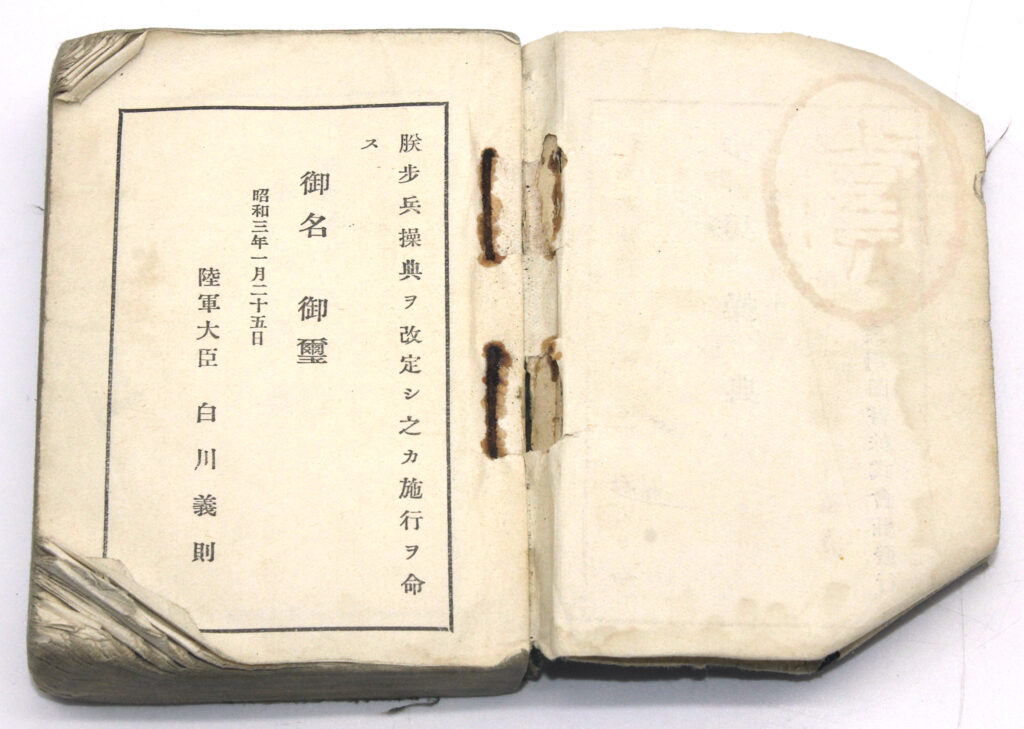 朕步兵操典ヲ改定シ之カ施行ヲ命
ス
御名 御璽
昭和三年一月二十五日
陸軍大臣 白川義則